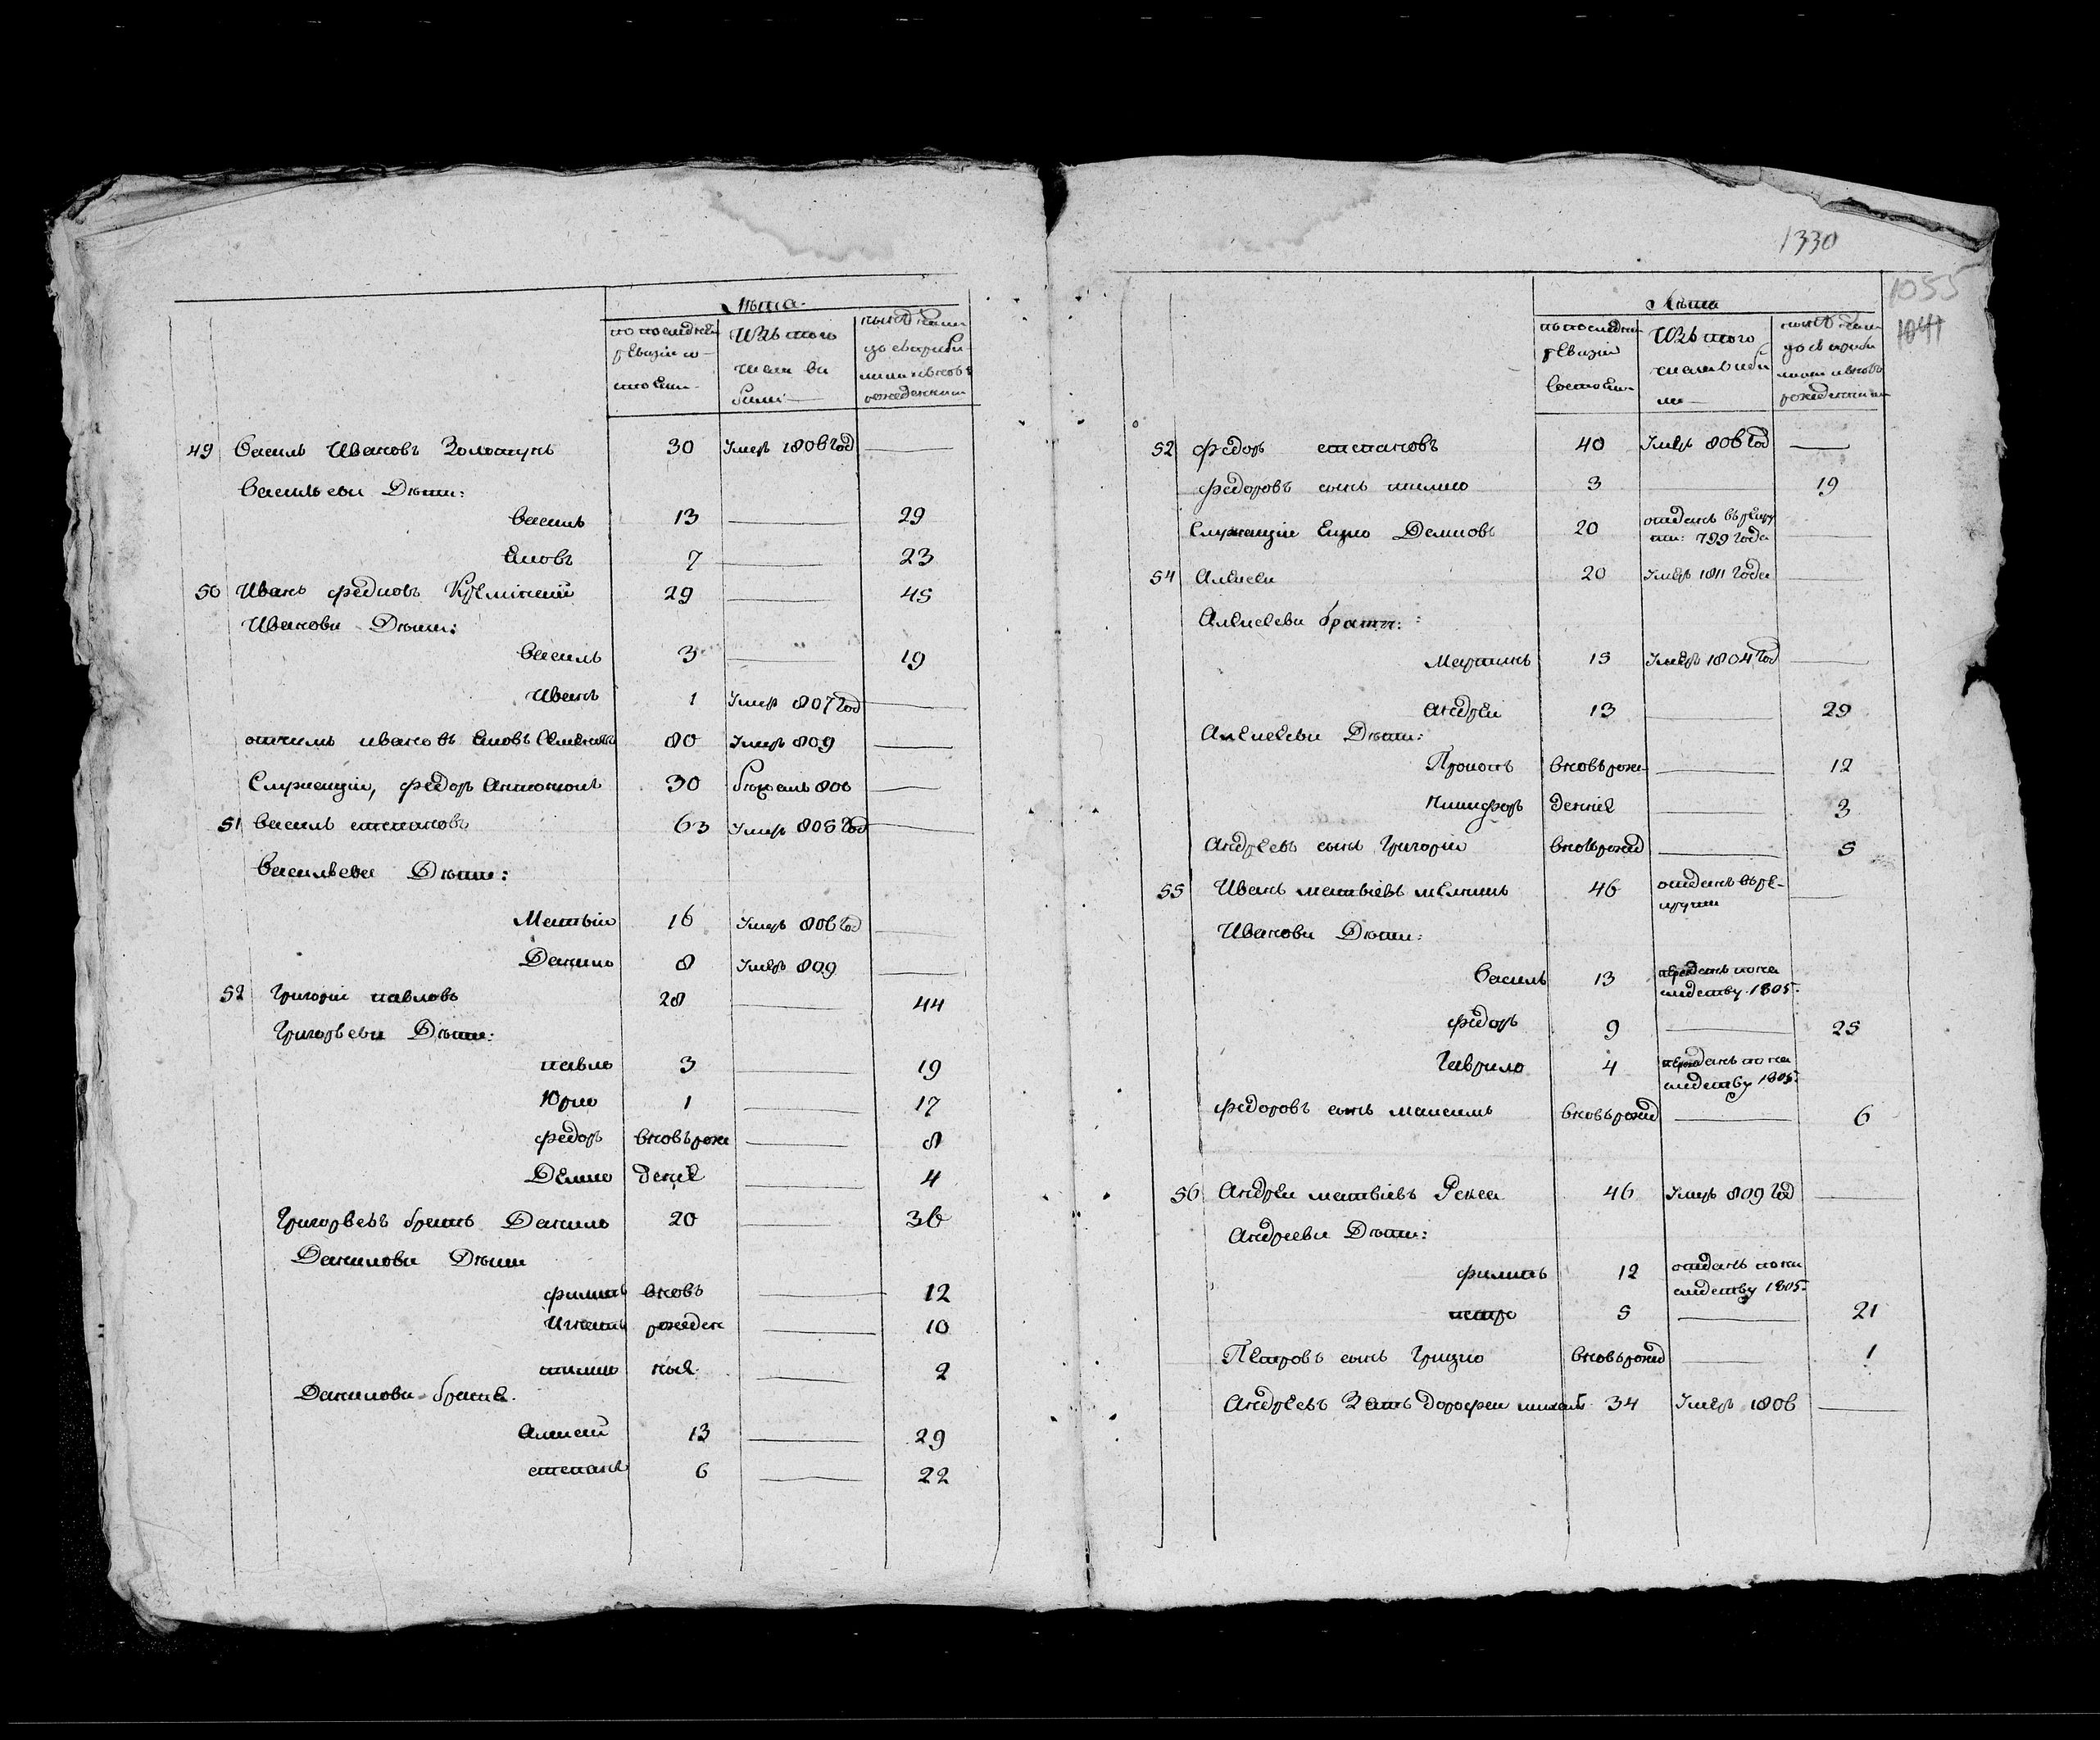 Лѣта
по последней
ревизіи со
стояли
Изъ того
числа вы
были
49 Василь Ивановъ Золотунъ 30 Умеръ 1806 год
Васильевы Дѣти:
Василь 13 29
Яковъ 7 23
50 Иванъ Федковъ 29 45
Ивановы Дѣти:
Василь 3 19
Иванъ 1 Умеръ 807 год
отчимъ ивановъ Яковъ 80 Умеръ 809
Служащіи, Федоръ 30 800
51 Василь степановъ 63 Умеръ 805 год
Васильевы Дѣти:
Матвіи 16 Умеръ 806 год
Данило 8 Умеръ 809
52 Григоріи павловъ 28 44
Григорьевы Дѣти:
павло 3 19
Юрко 1 17
федоръ вновь рож 8
Демко денніе 4
Григорьевъ братъ Данило 20 36
Даниловы Дѣти
филипъ вновь 12
Игнатъ рожден 10
ные 2
Даниловы братье
Алексей 13 29
степанъ 6 22
1330
1055
1041
Лѣта
по последней
ревизіи
состояли
Изъ того
числа выбы
ли
52 Федоръ степановъ 40 Умеръ 806 год
Федоровъ сынъ 3 19
Служащіи Яцко Демковъ 20 отданъ въ рекру
ты: 799 года
54 Алексеи 20 Умеръ 1811 года
Алексеевы братья:
Мартинъ 15 Умеръ 1804 год
Андреи 13 29
Алексеевы Дѣти:
Прокопъ вновь рож 12
Никифоръ денніе 3
Андреевъ сынъ Григоріи вновь рожд 5
55 Иванъ матвіевъ 46 отданъ въ ре-
круты
Ивановы Дѣти:
Василь 13 переданъ по на
следству 1805.
федоръ 9 25
Гаврило 4 переданъ по на
следству 1805.
федоровъ сынъ максимъ вновь рожд 6
56 Андреи матвіевъ 46 Умеръ 809 год
Андреевы Дѣти:
филипъ 12 отданъ по на
следству 1805.
петро 5 21
Петровъ сынъ Грицко вновь рожд 1
Андреевъ Зять дорофеи 34 Умеръ 1806